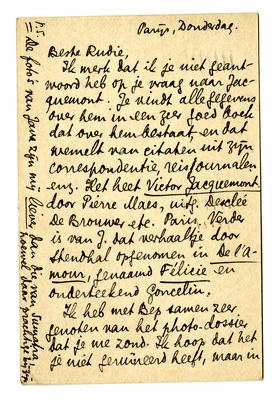 Parijs, Donderdag.
Beste Rudie,
Ik merk dat ik je niet geant-
woord heb op je vraag naar Jac-
quemont. Je vindt alle gegevens
over hem in een zeer goed boek
dat over hem bestaat, en dat
wemelt van citaten uit zijn
correspondentie, reisjournalen
enz. Het heet Victor Jacquemont
door Pierre Maes, uitg. Desclée
De Brouwer etc. Paris. Verder
is van J. dat verhaaltje door
Stendhal opgenomen in De l'A-
mour, genaamd Félicie en
onderteekend Goncelin.
Ik heb met Bep samen zeer
genoten van het photo-dossier
dat je me zond. Ik hoop dat het
je niet geruïneerd heeft, maar in
P.S.
= De foto's van Java zijn mij liever dan die van Sumatra,
hoewel daar prachtige bij zijn